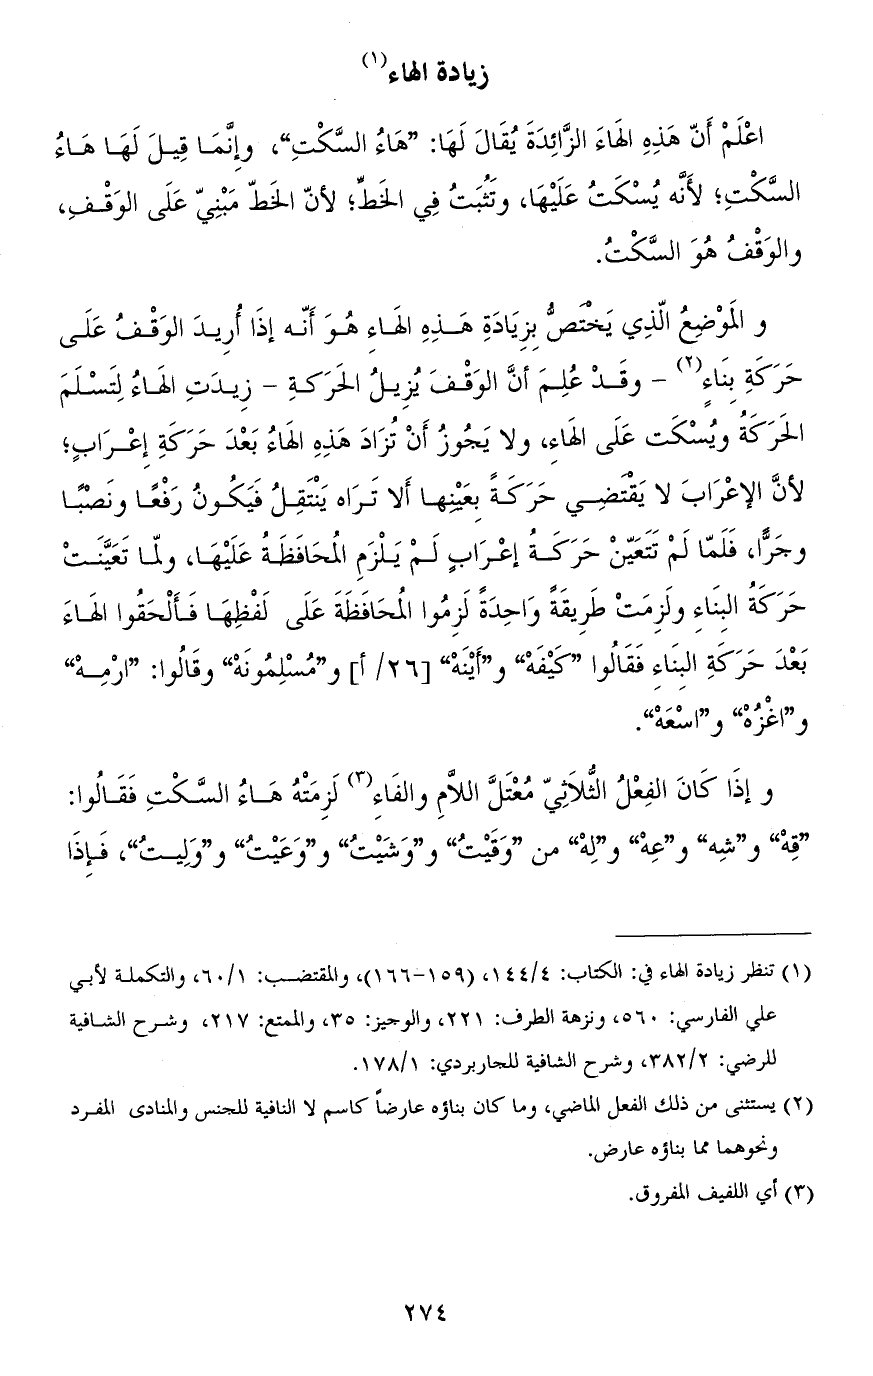 زيادة الهاء(١)
اعْلَمْ أَنّ هَذِهِ الهَاءَ الزَّائِدَةَ يُقَالَ لَهَا: ”هَاءُ السَّكْتِ“، وإِنَّمَا قِيلَ لَهَا هَاءُ
السَّكْتِ؛ لأَنَّه يُسْكَتُ عَلَيْهَا، وتَثْبَتُ فِي الخَطِّ؛ لأنّ الخَطّ مَبْنِيّ عَلَى الوَقْفِ،
والوَقْفُ هُوَ السَّكْتُ.
و المَوْضِعُ الّذِي يَخْتَصُّ بِزِيَادَةِ هَذِهِ الهَاءِ هُوَ أَنّه إِذَا أُرِيدَ الوَقْفُ عَلَى
حَرَكَةِ بِنَاءٍ(٢) – وقَدْ عُلِمَ أنَّ الوَقْفَ يُزِيلُ الحَرَكةِ – زِيدَتِ الهَاءُ لِتَسْلَمَ
الحَرَكَةُ ويُسْكَت عَلَى الهَاءِ، ولا يَجُوزُ أَنْ تُزَادَ هَذِهِ الهَاءُ بَعْدَ حَرَكَةِ إِعْرَابٍ؛
لأنَّ الإِعْرَابَ لا يَقْتَضِي حَرَكَةً بِعَيْنِها أَلا تَرَاه يَنْتَقِلُ فَيَكُونُ رَفْعًا ونَصْبًا
وجَرًّا، فَلَمّا لَمْ تَتَعَيّنْ حَرَكَةُ إِعْرَابٍ لَمْ يَلْزَمِ المُحَافَظَةُ عَلَيْهَا، ولمّا تَعَيَّنَتْ
حَرَكَةُ البِنَاءِ ولَزِمَتْ طَرِيقَةً وَاحِدَةً لَزِمُوا المُحَافَظَةَ عَلَى لَفْظِهَا فَأَلْحَقُوا الهَاءَ
بَعْدَ حَرَكَةِ البِنَاءِ فَقَالُوا ”كَيْفَهْ“ و”أَيْنَهْ“ [٢٦/ أ] و”مُسْلِمُونَهْ“ وقَالُوا: ”ارْمِهْ“
و”اغْزُهْ“ و”اسْعَهْ“.
و إِذَا كَانَ الفِعْلُ الثُّلَاثِيّ مُعْتَلَّ اللاَّمِ والفَاءِ(٣) لَزِمَتْهُ هَاءُ السَّكْتِ فَقَالُوا:
”قِهْ“ و”شِه“ و”عِهْ“ و”لِهْ“ من ”وَقَيْتُ“ و”وَشَيْتُ“ و”وَعَيْتُ“ و”وَلِيتُ“، فَإِذَا
(١) تنظر زيادة الهاء في: الكتاب: ١٤٤/٤، (١٥٩–١٦٦)، والمقتضب: ٦٠/١، والتكملة لأبي
علي الفارسي: ٥٦٠، ونزهة الطرف: ٢٢١، والوجيز: ٣٥، والممتع: ٢١٧، وشرح الشافية
للرضي: ٣٨٢/٢، وشرح الشافية للجاربردي: ١٧٨/١.
(٢) يستثنى من ذلك الفعل الماضي، وما كان بناؤه عارضاً كاسم لا النافية للجنس والمنادى المفرد
ونحوهما مما بناؤه عارض.
(٣) أي اللفيف المفروق.
٢٧٤